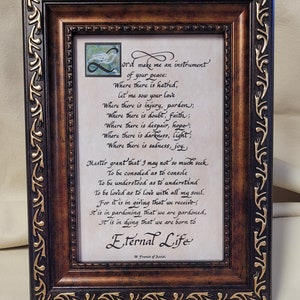 Lord make me an instrument
of your peace:
Where there is hatred,
let me sow your love
Where there is injury, pardon;
Where there is doubt, faith;
Where there is despair, hope;
Where there is darkness, light
Where there is sadness, joy.
Master grant that I may not so much seek,
To be consoled as to console
To be understood as to understand
To be loved as to love with all my soul.
For it is in giving that we receive;
It is in pardoning that we are pardoned,
It is in dying that we are born to
Eternal Life
St Francis of Assisi